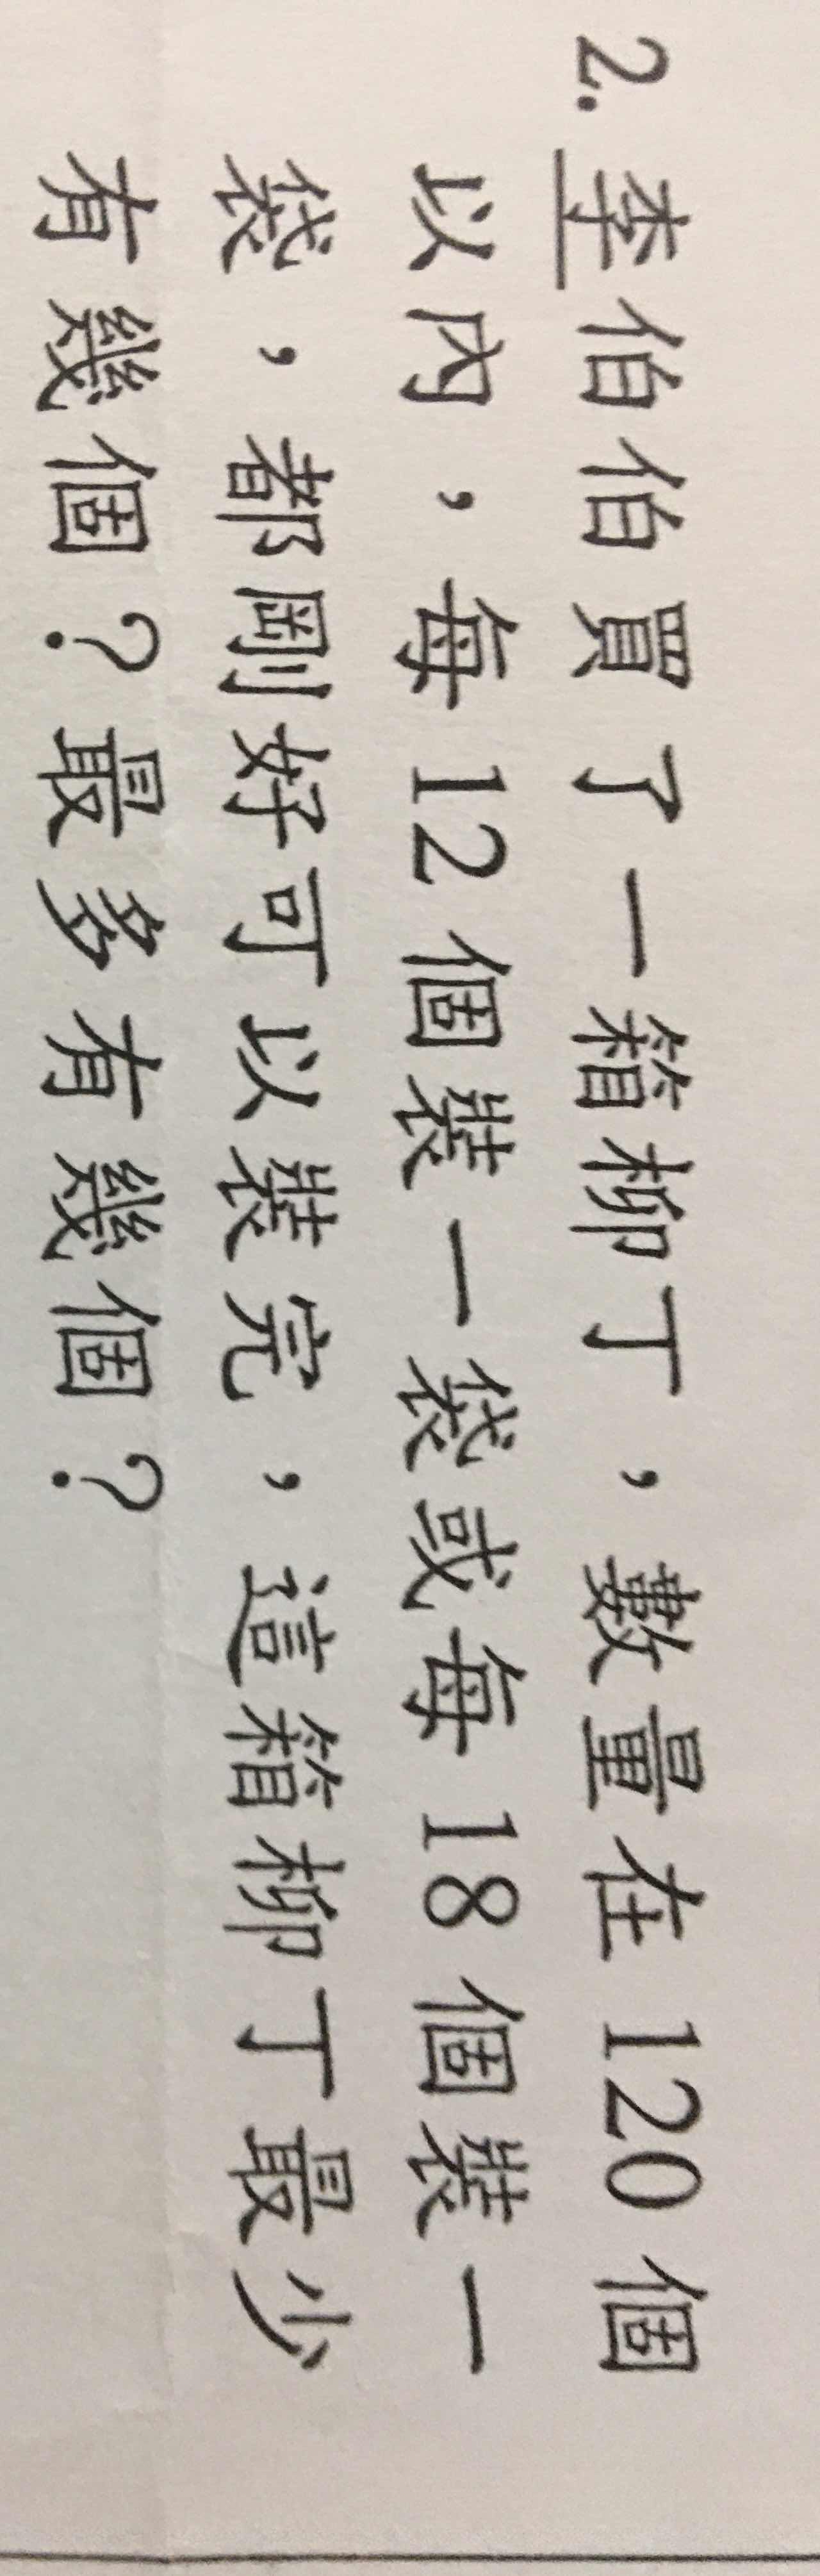 2. 李伯伯買了一箱柳丁，數量在 120 個
以內，每 12 個裝一袋或每 18 個裝一
袋，都剛好可以裝完，這箱柳丁最少
有幾個？最多有幾個？